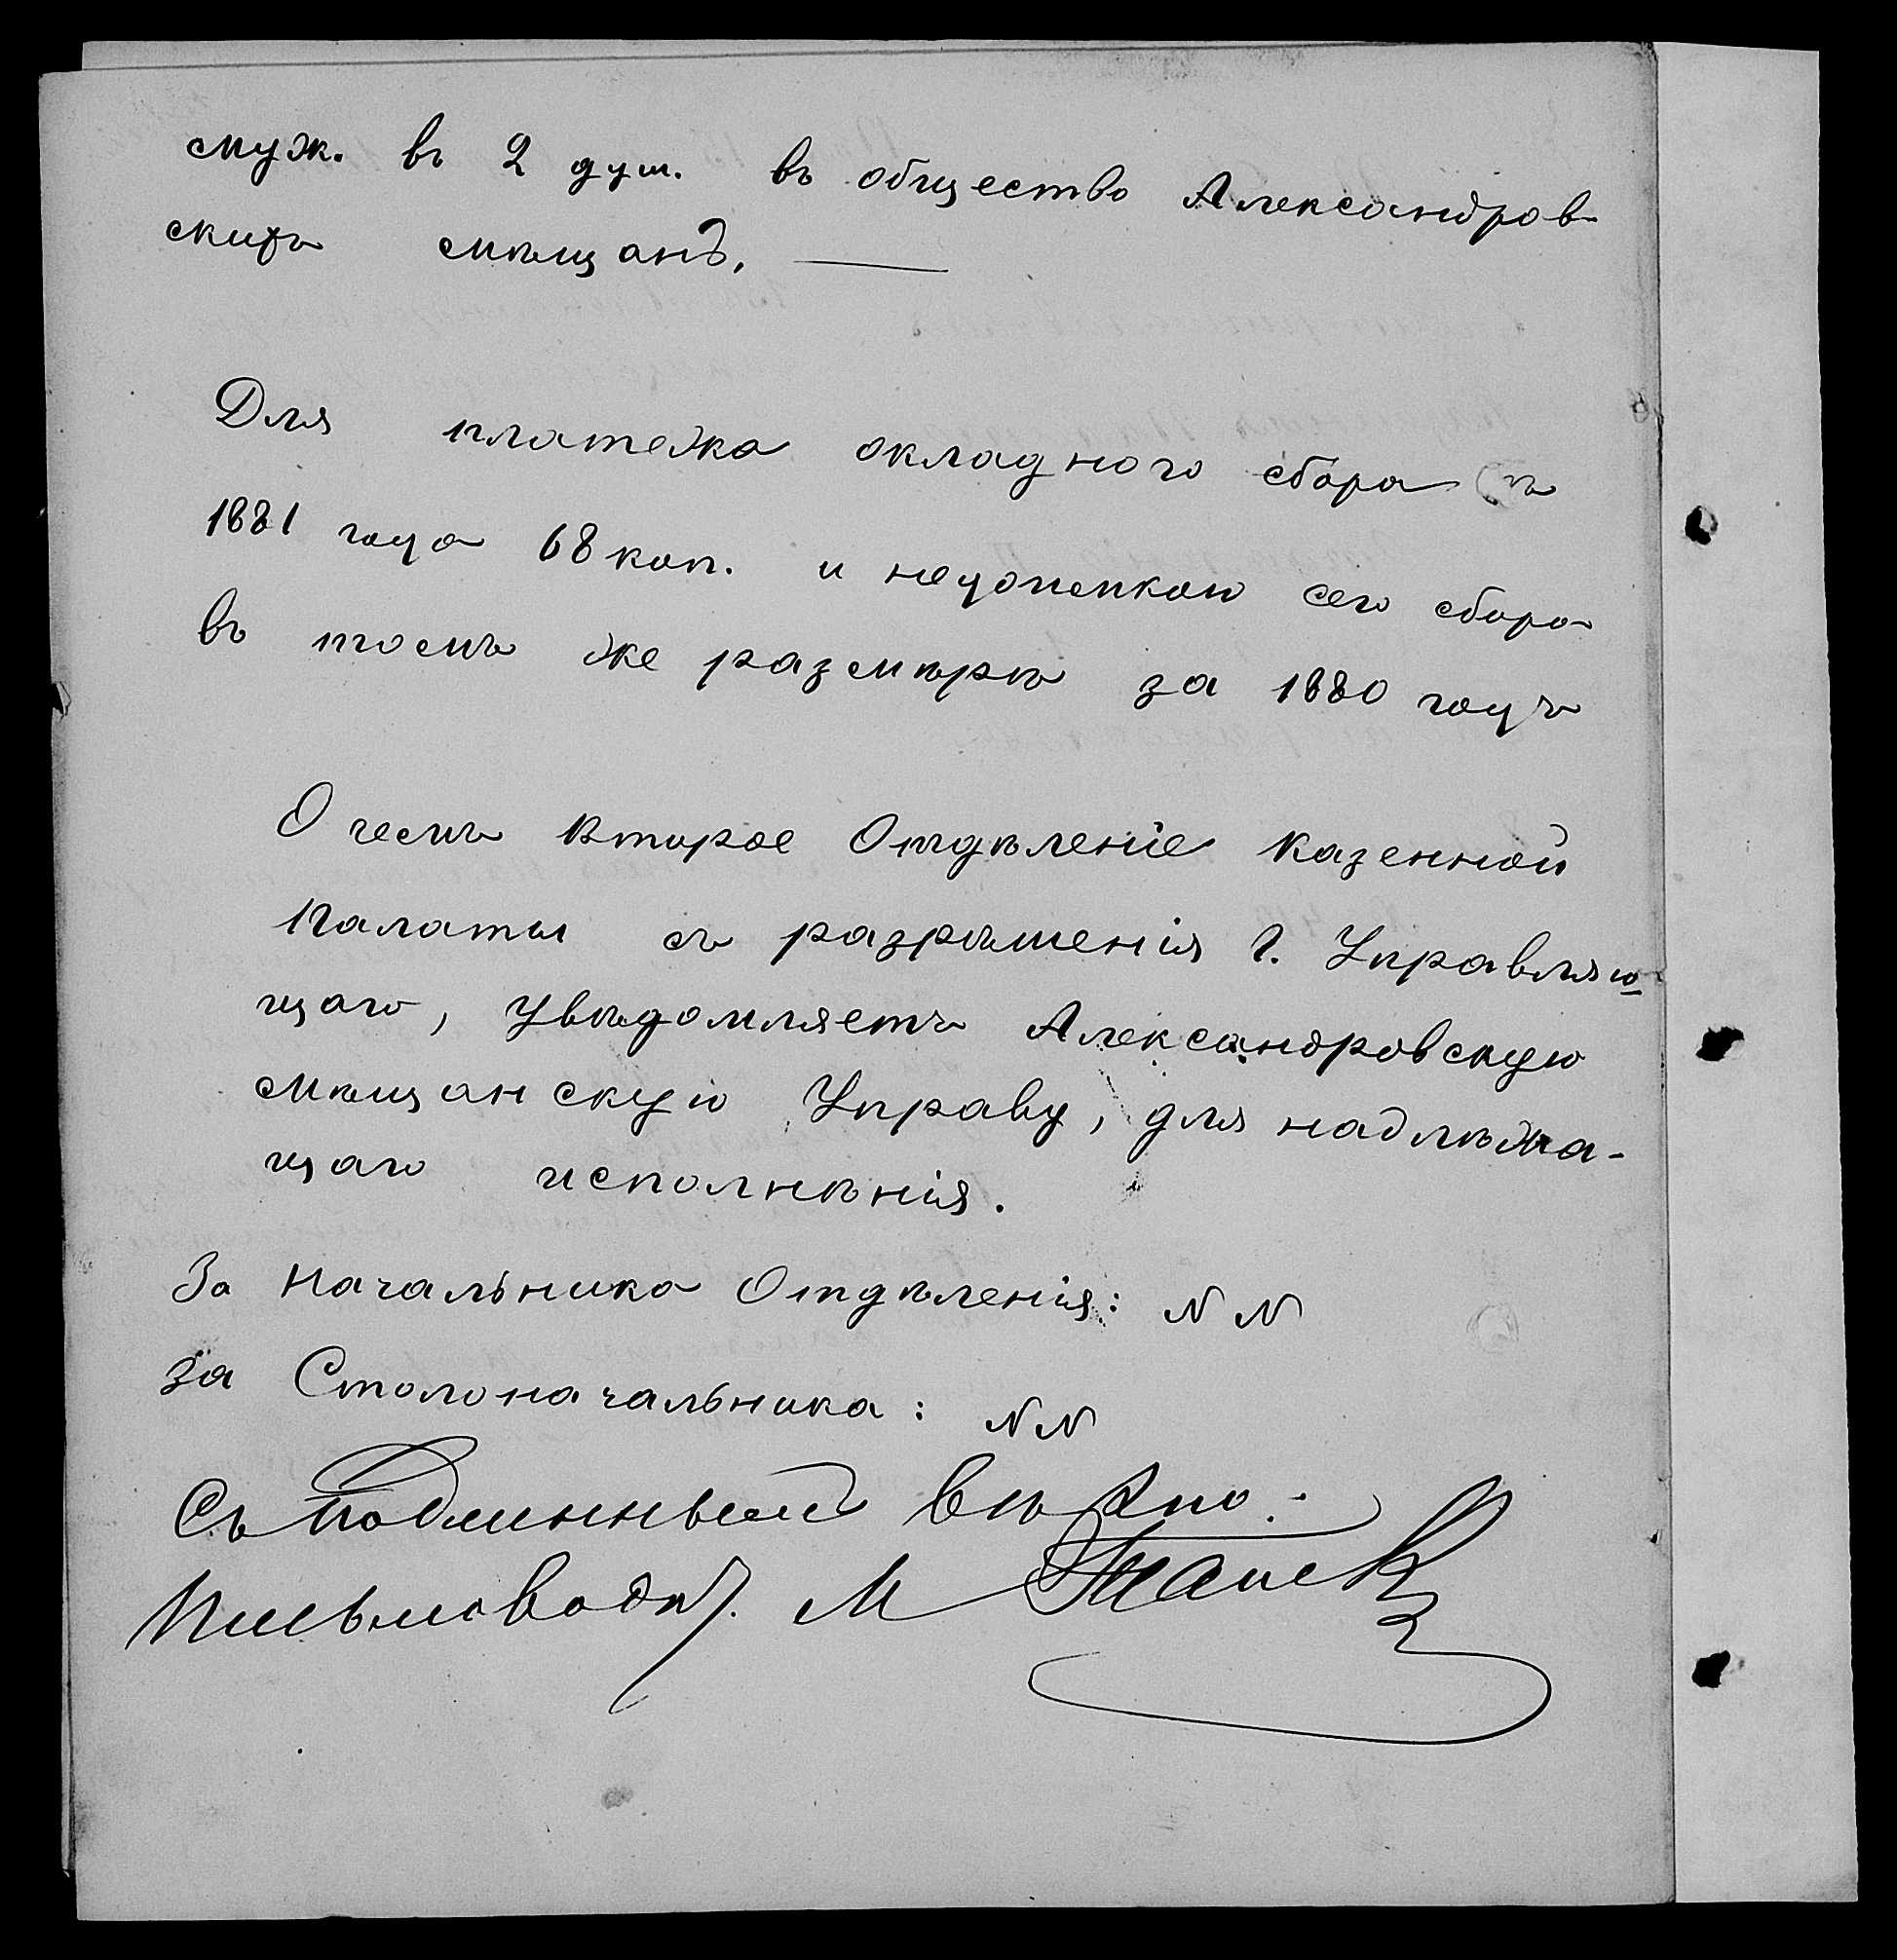 муж. въ 2 душ. въ общество Александров
скихъ мѣщанъ.
Для платежа окладного сбора съ
1881 года 68 коп. и недоимкою сего сбора
въ томъ же размѣрѣ за 1880 годъ
О чемъ Второе Отдѣленіе Казенной
Палаты съ разрѣшенія Г. Управляю
щаго, увѣдомляетъ Александровскую
мѣщанскую Управу, для надлѣжа-
щаго исполнѣнія.
За Начальника Отдѣленія: N N
За Столоначальника: N N
Съ подлиннымъ вѣрно:
Письмовод. М